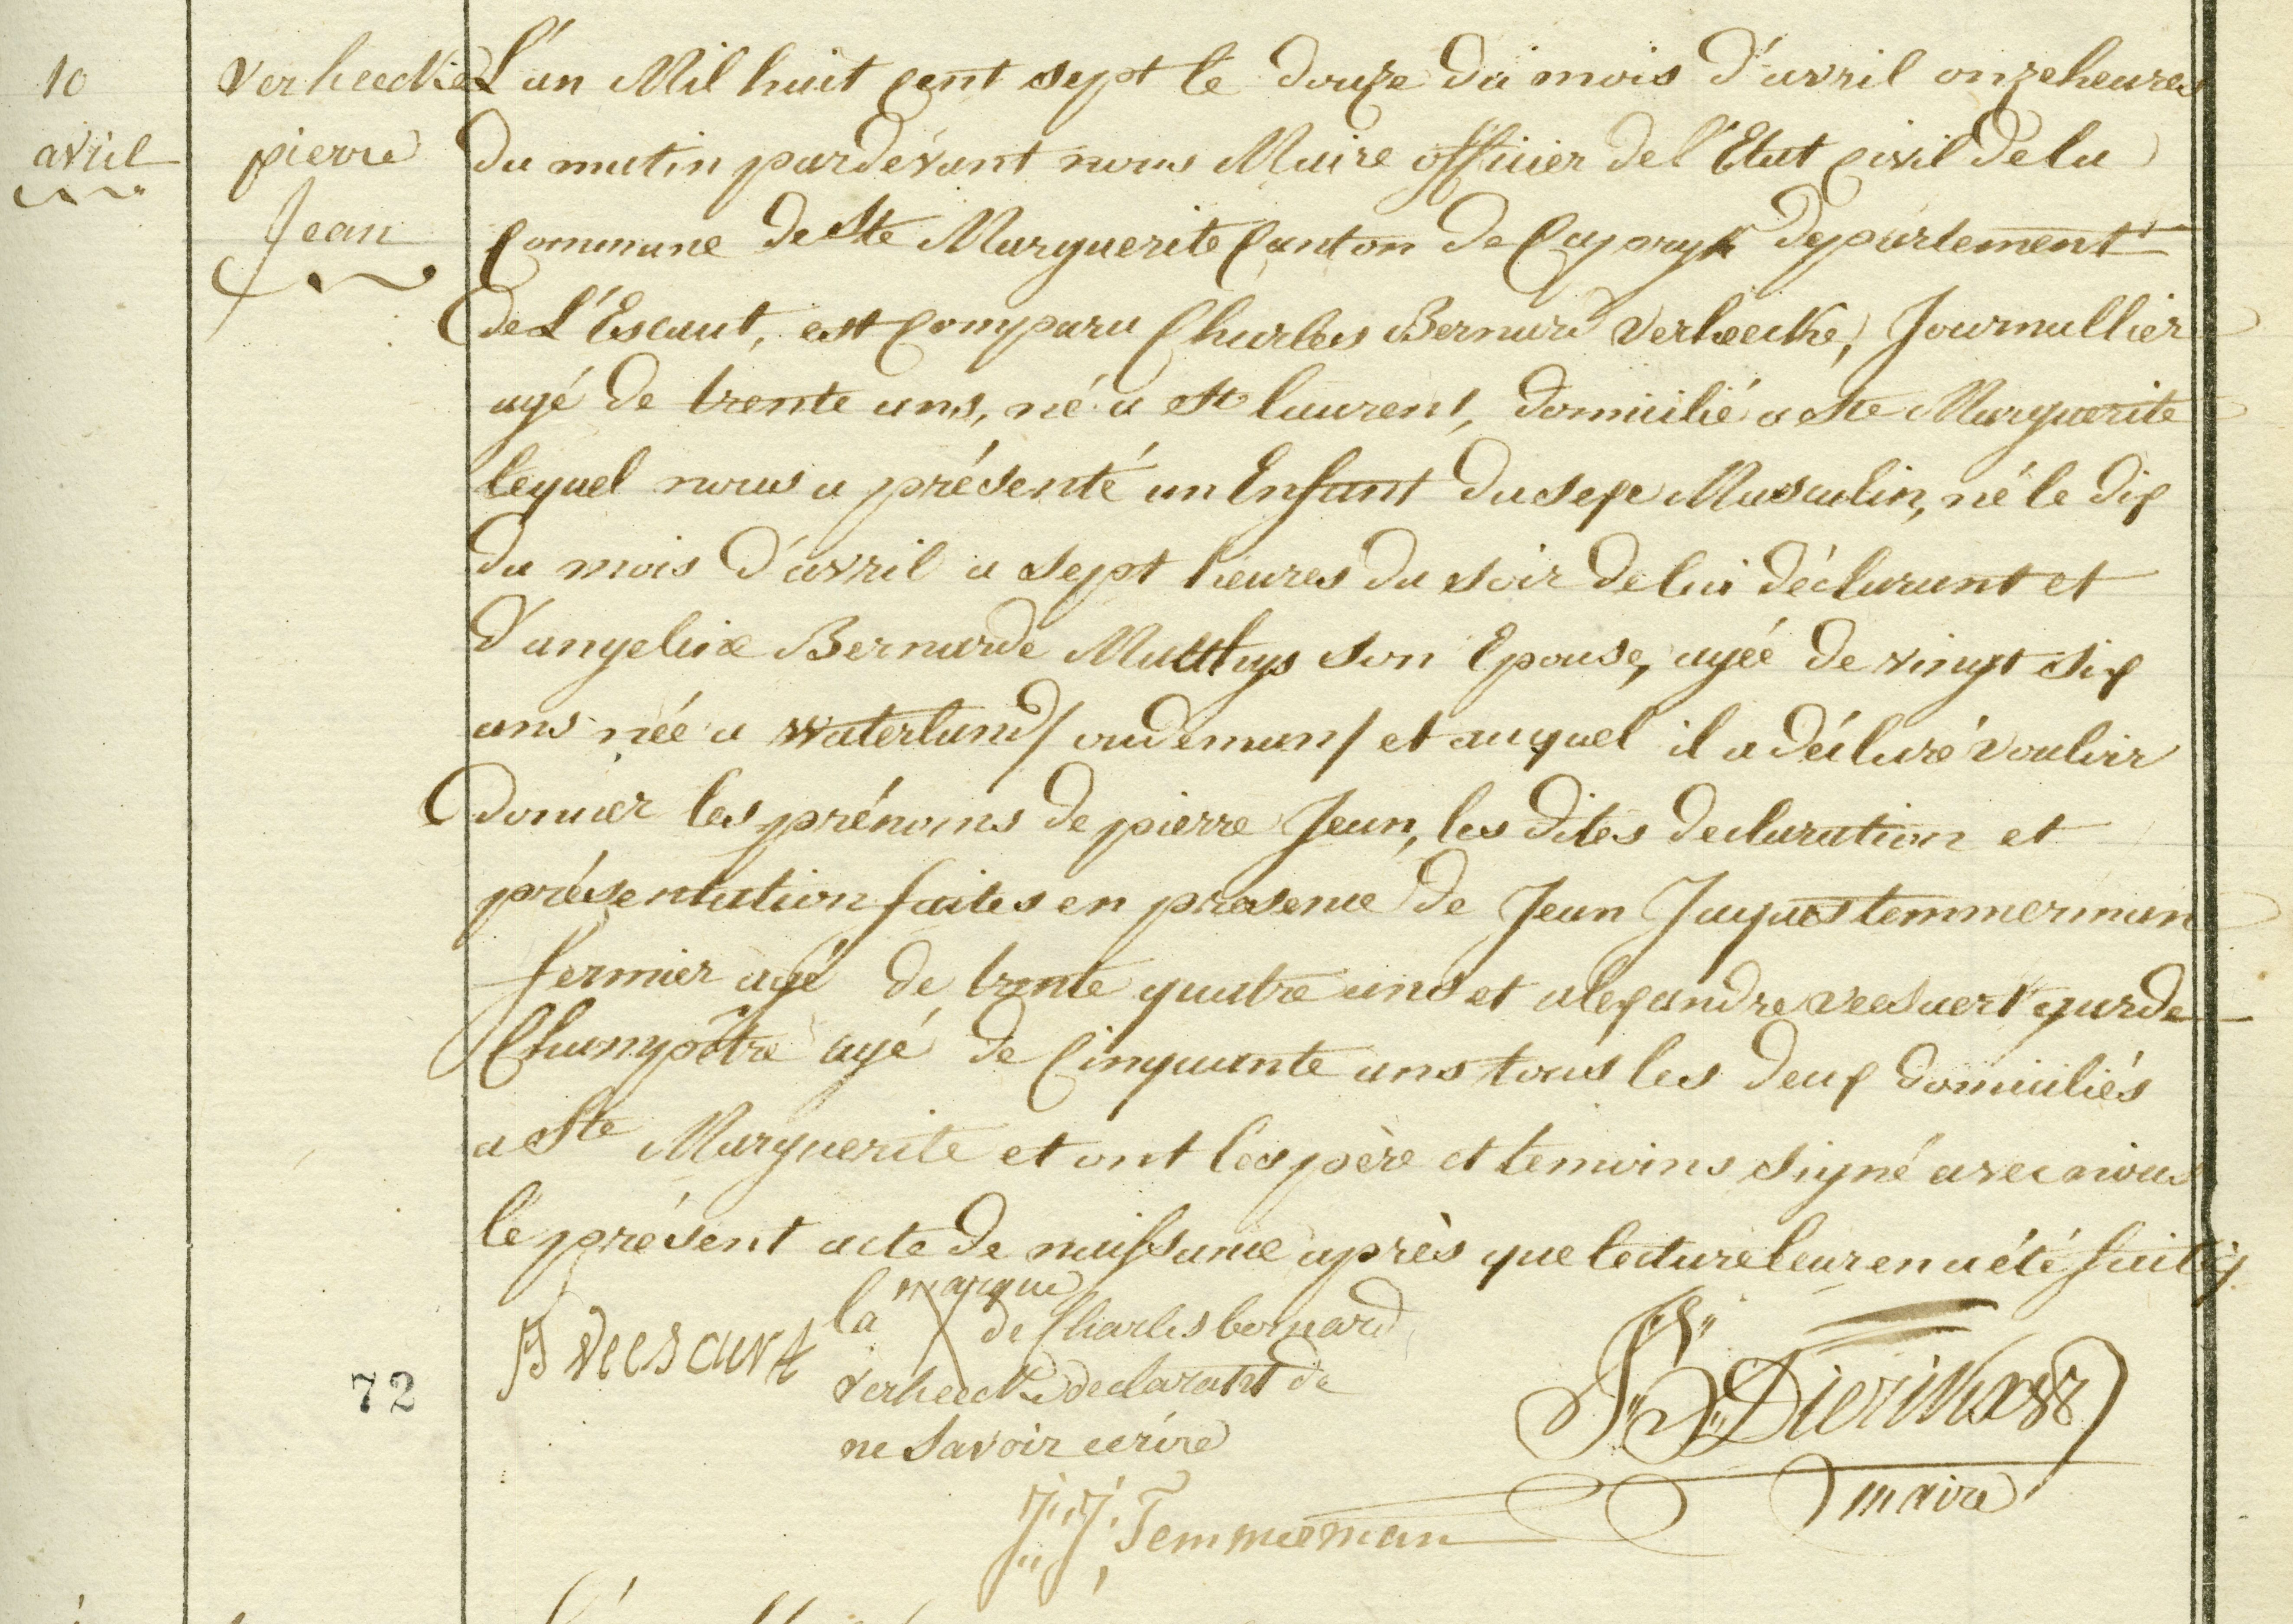 10
avril
verheecke
pierre
Jean
L'an Mil huit cent sept le douze du mois d'avril onze heures
du matin pardevant nous Maire officier de l'Etat civil de la
Commune de Ste Marguerite Canton de Capryk departement
de L'Escaut, est comparu Charles Bernard verheecke, Journallier
agé de trente ans, né a St laurent, domicilié a Ste Marguerite
lequel nous a présenté un Enfant du sexe Masculin, né le dix
du mois d'avril a sept heures du soir de lui déclarant et
d'angeline Bernarde Matthys son Epouse, agéé de vingt six
ans née a waterland/oudeman/ et auquel il a déclaré vouloir
donner les prénoms de pierre Jean, les dites declaration et
présentation faites en presence de Jean Jaques temmerman
fermier agé de trente quatre ans et alexandre veesaert garde
Champêtre agé de Cinquante ans tous les deux domiciliés
a Ste Marguerite et ont les père et temoins signé avec nous
le présent acte de naissance après que lecture leur en a été faite
la marque X de Charles bernard
verheecke declarant de
ne savoir ecrire
veesaert
72
maire
J: J: Temmerman